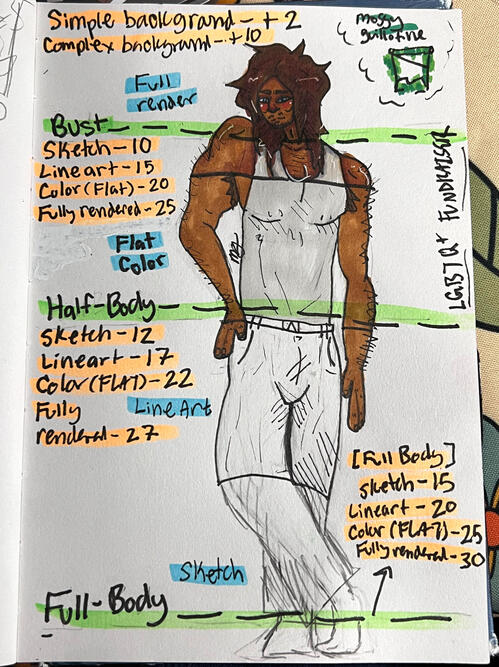 Simple background - + 2
Complex background - + 10
Mossy
guillotine
Full
render
Bust
Sketch - 10
Lineart - 15
Color (Flat) - 20
Fully rendered - 25
LGBTQ+ FUNDRAISER
Flat
Color
Half-Body
Sketch - 12
Lineart - 17
Color (FLAT) - 22
Fully
rendered - 27
Line Art
[Full Body]
Sketch - 15
Lineart - 20
Color (FLAT) - 25
Fully rendered - 30
Sketch
Full-Body